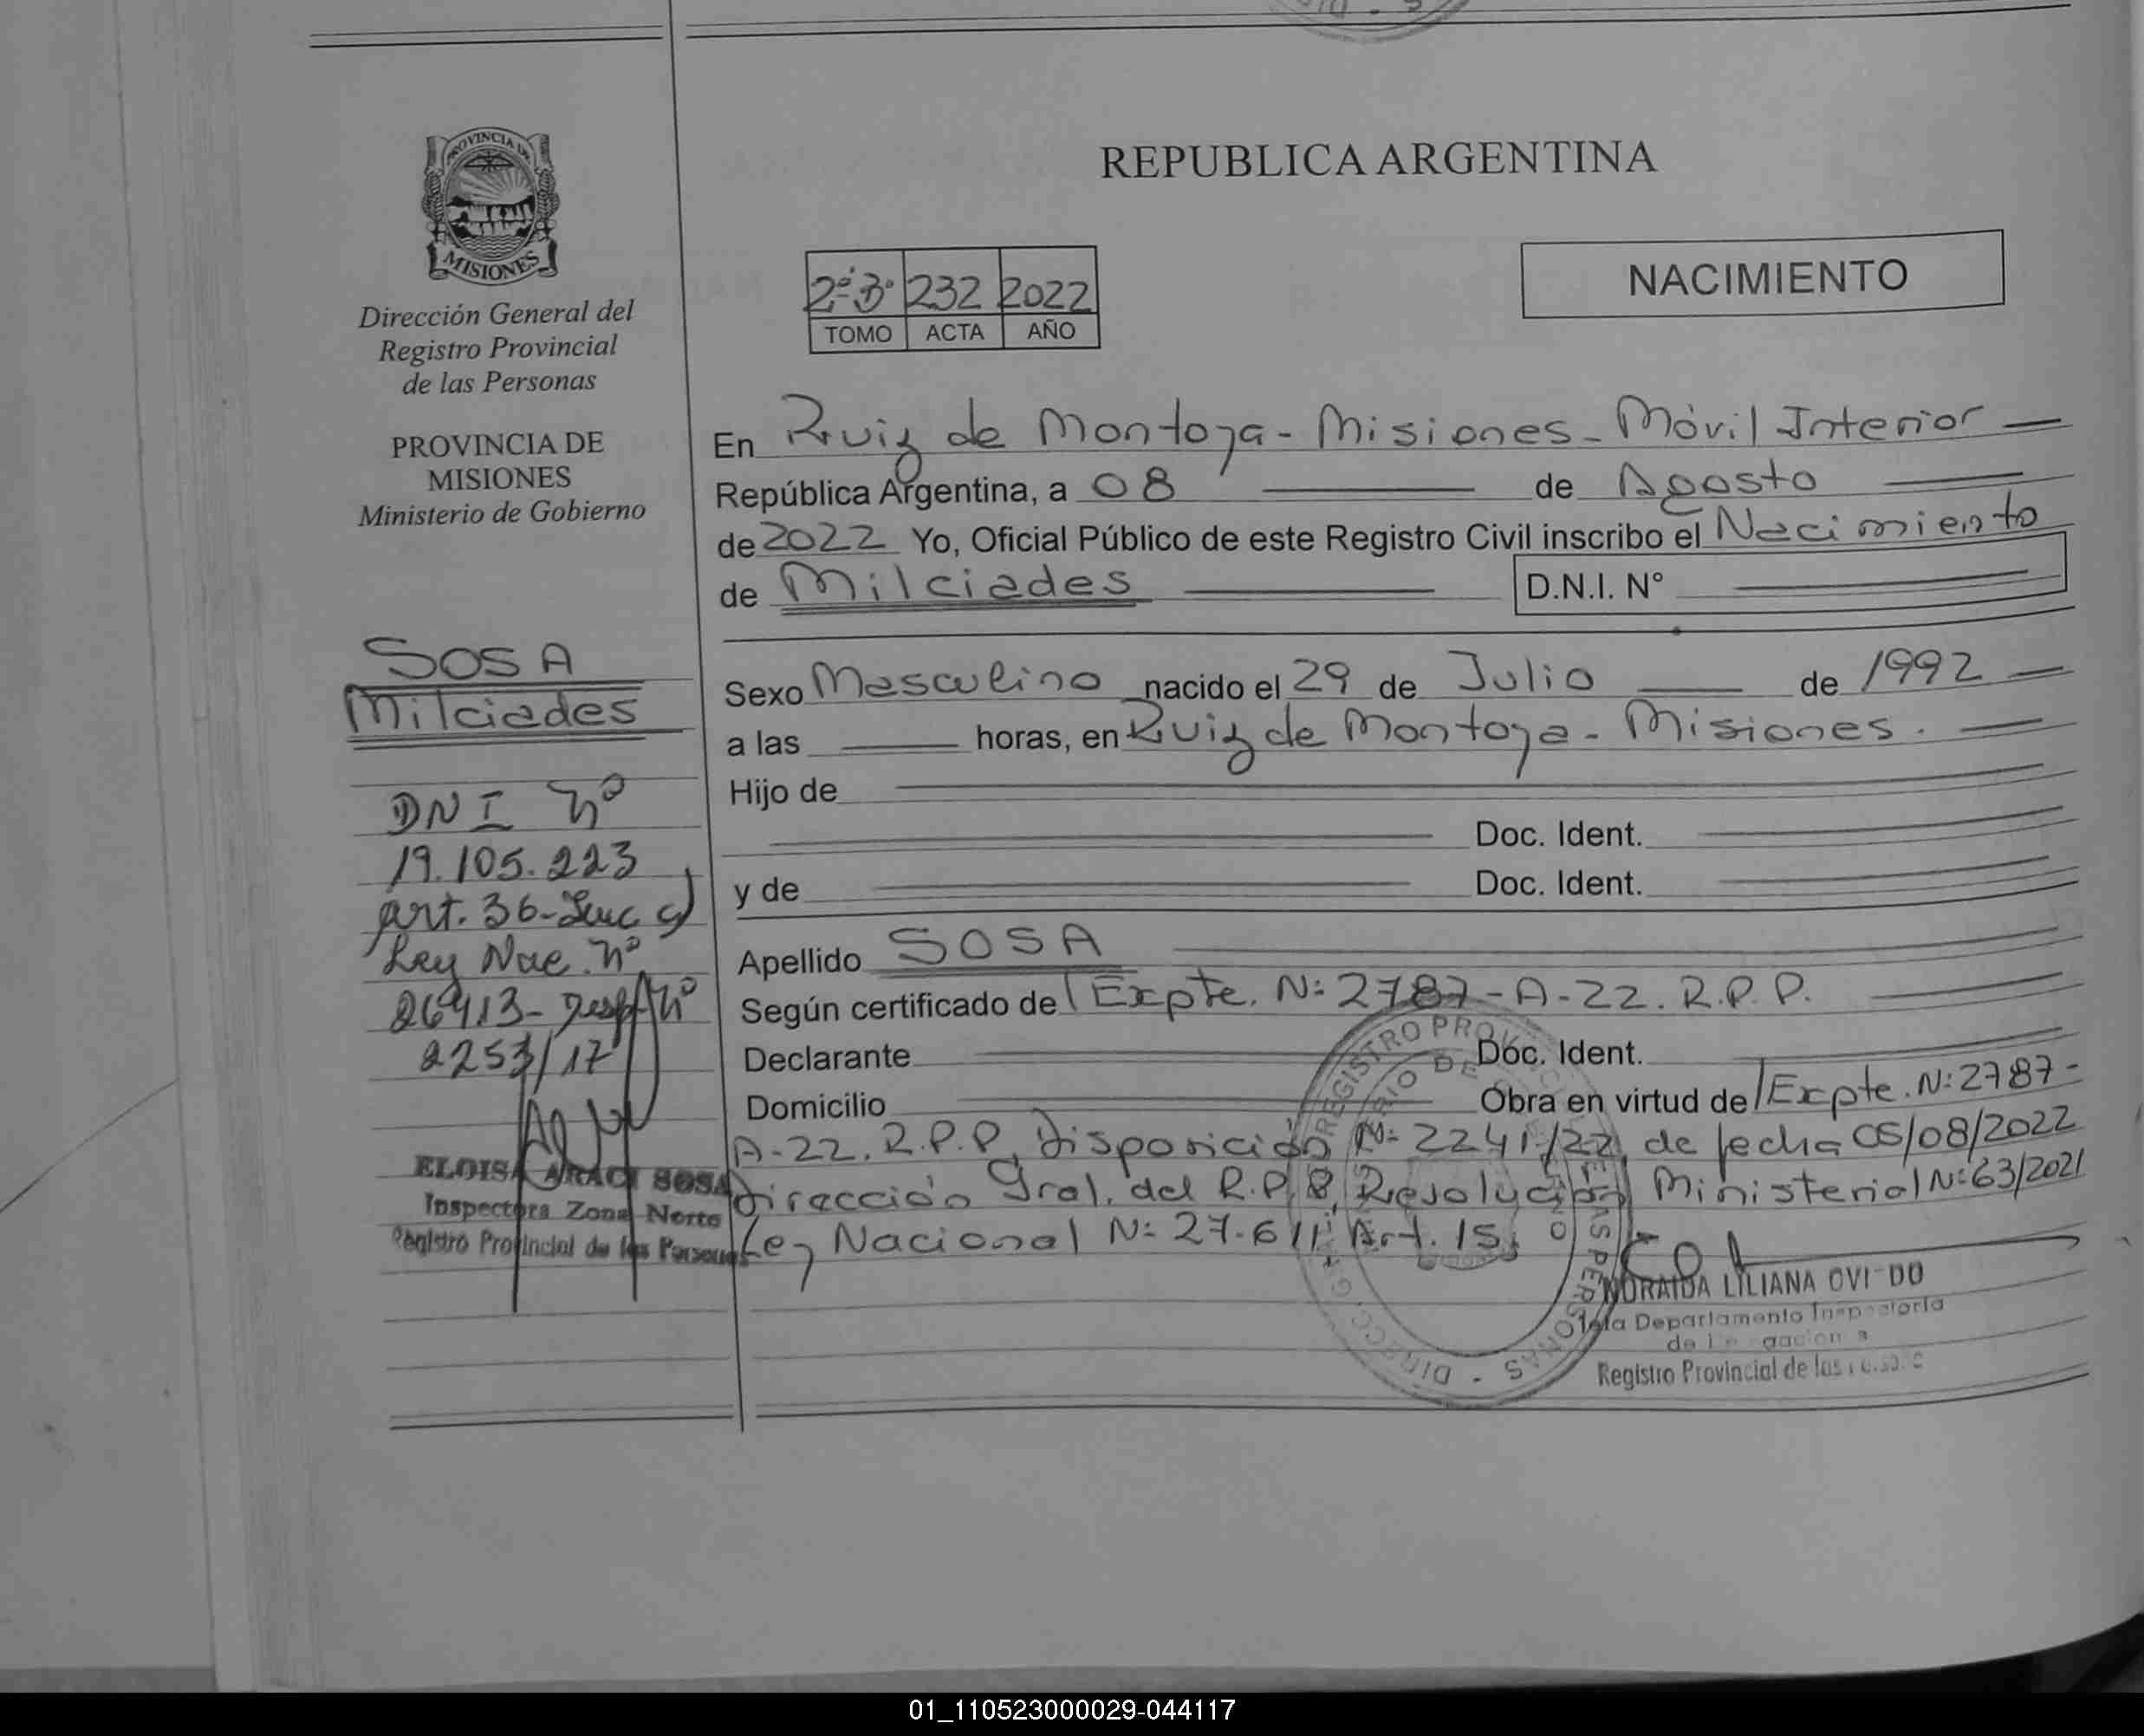 PROVINCIA DE
MISIONES
Dirección General del
Registro Provincial
de las Personas
PROVINCIA DE
MISIONES
Ministerio de Gobierno
SOSA
Milciades
DNI Nº
19.105.223
art. 36- Inc c)
Ley Nac. Nº
26413- Disp. Nº
2253/17
ELOISA ARACI SOSA
Inspectora Zona Norte
Registro Provincial de las Personas
REPUBLICA ARGENTINA
NACIMIENTO
2º-B· 232 2022
TOMO ACTA AÑO
En Ruiz de Montoya - Misiones - Móvil Interior
República Argentina, a 08 de Agosto
de 2022 Yo, Oficial Público de este Registro Civil inscribo el Nacimiento
de Milciades D.N.I. Nº
Sexo Masculino nacido el 29 de Julio de 1992
a las horas, en Ruiz de Montoya - Misiones.
Hijo de
Doc. Ident.
y de Doc. Ident.
Apellido SOSA
Según certificado de Expte. Nº 2787-A-22. R.P.P.
Declarante Doc. Ident.
Domicilio Obra en virtud de Expte. Nº 2787-
A-22. R.P.P, Disposición Nº 2241/22, de fecha 05/08/2022
Dirección Gral. del R.P.P, Resolución Ministerial Nº 63/2021
Ley Nacional Nº 27.611 Art. 15
NORAIDA LILIANA OVIEDO
Departamento Inspectoría
Registro Provincial de las
01_110523000029-044117